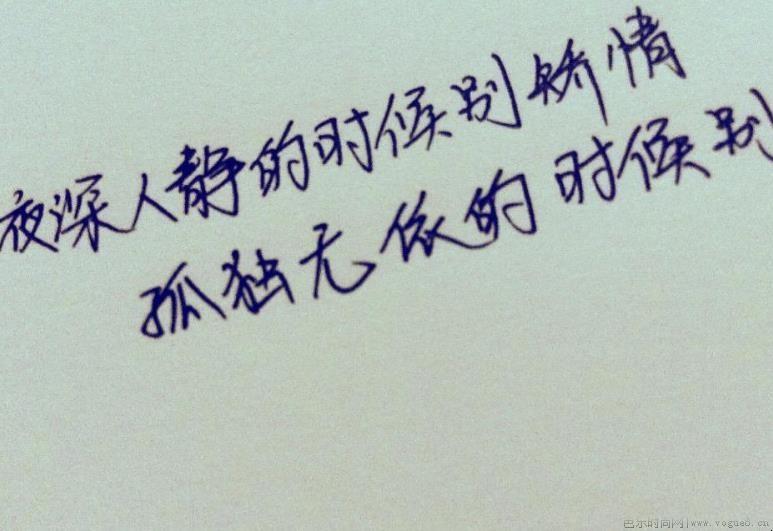 夜深人静的时候别矫情
孤独无依的时候别
www.vogue8.cn